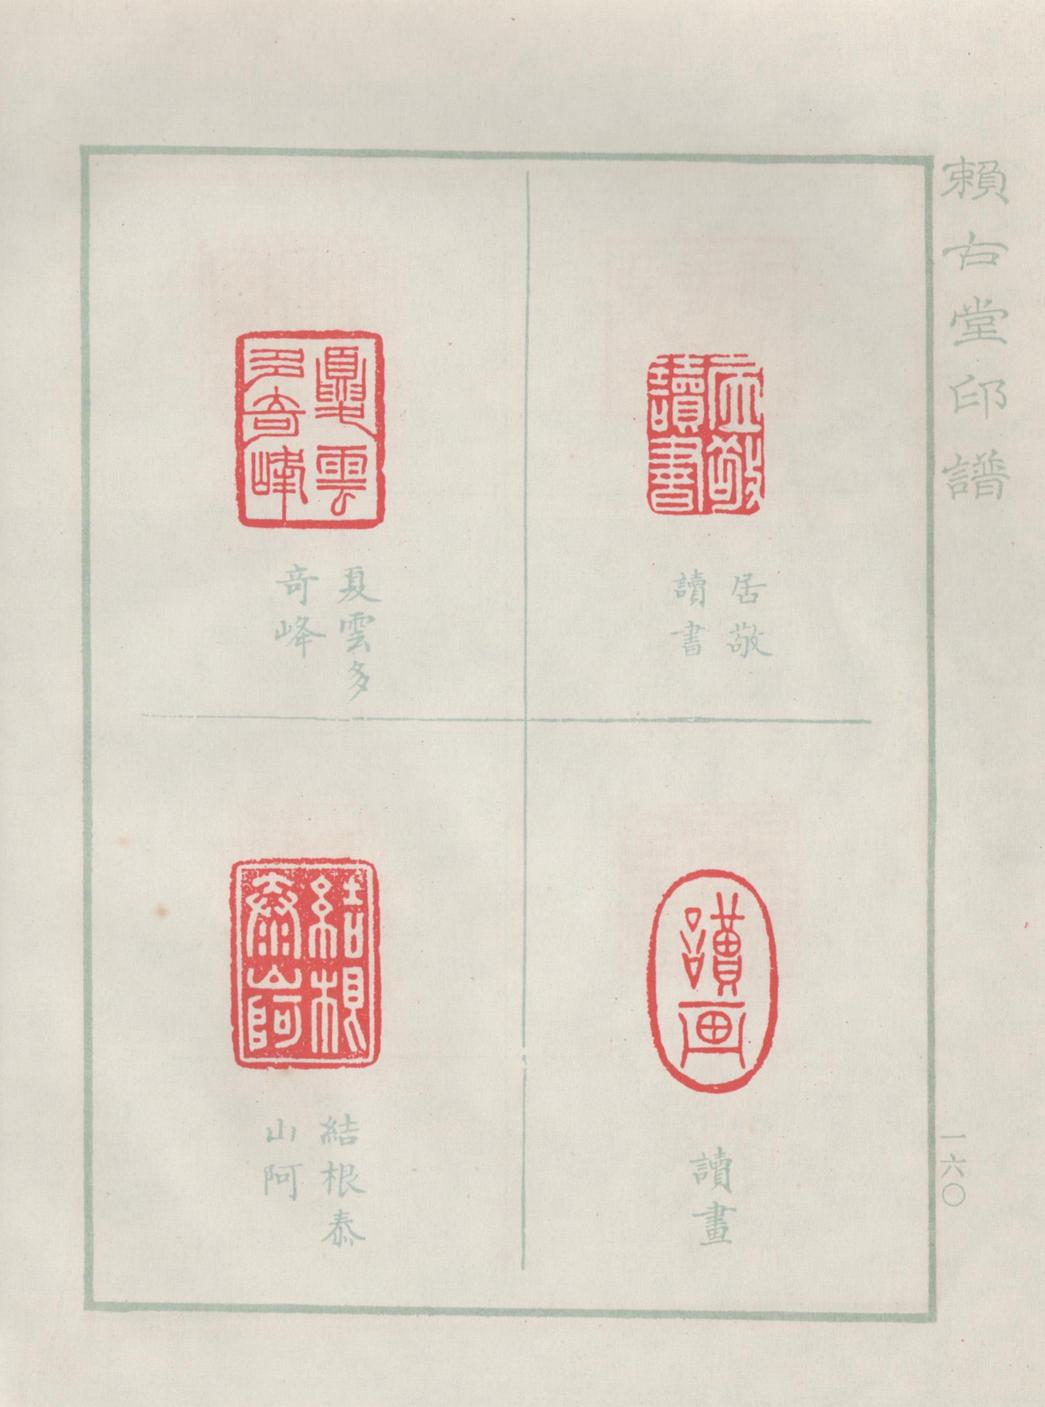 賴古堂印譜
居敬
讀書
居敬
讀書
讀畫
讀畫
夏雲
多奇峰
夏雲多
奇峰
結根
泰山阿
結根泰
山阿
一六〇